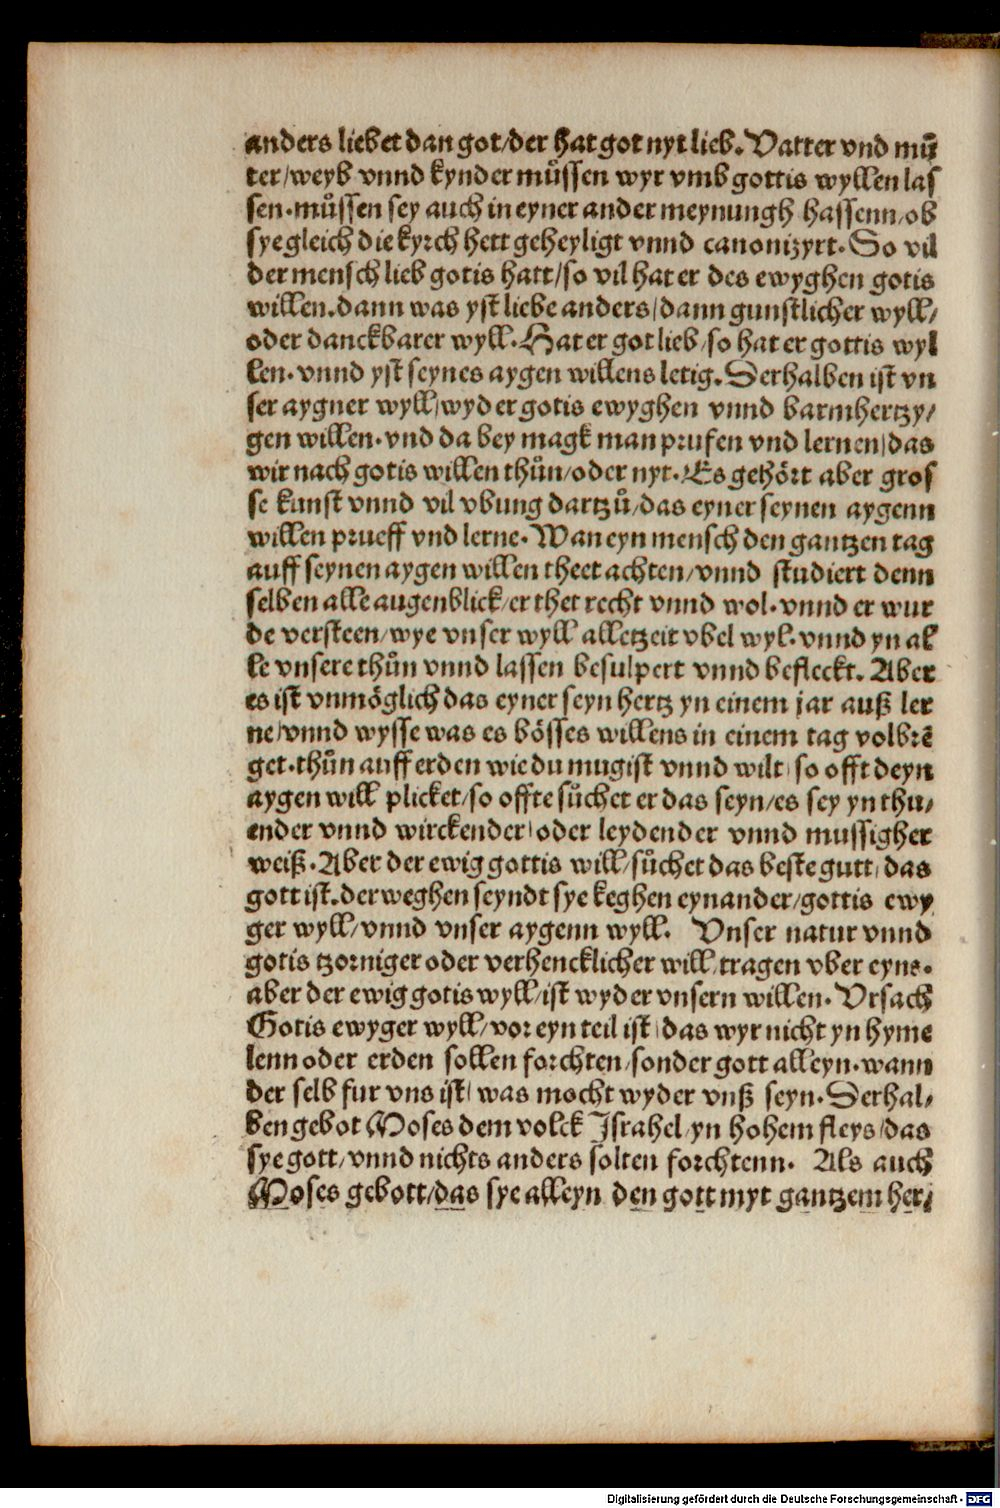 anders liebet dan got/der hat got nyt lieb. Vatter vnd mů̄
ter/weyb vnnd kynder můssen wyr vmb gottis wyllen las
sen. můssen sey auch in eyner ander meynungh hassenn/ob
sye gleich die kyrch hett geheyligt vnnd canonizyrt. So vil
der mensch lieb gotis hatt/so vil hat er des ewyghen gotis
willen. dann was yst liebe anders/dann gunstlicher wyll/
oder danckbarer wyll. Hat er got lieb/so hat er gottis wyl
len. vnnd yst seynes aygen willens letig. Derhalben ist vn
ser aygner wyll/wyder gotis ewyghen vnnd barmhertzy/
gen willen. vnd da bey magk man prufen vnd lernen/das
wir nach gotis willen thůn/oder nyt. Es gehört aber gros
se kunst vnnd vil vbung dartzů/das eyner seynen aygenn
willen prueff vnd lerne. Wan eyn mensch den gantzen tag
auff seynen aygen willen theet achten/vnnd studiert denn
selben alle augenblick/er thet recht vnnd wol. vnnd er wur
de versteen/wye vnser wyll alletzeit vbel wyl. vnnd yn al
le vnsere thůn vnnd lassen besulpert vnnd befleckt. Aber
es ist vnmöglich das eyner seyn hertz yn einem jar auß ler
ne/vnnd wysse was es bösses willens in einem tag volbrē
get. thůn auff erden wie du mugist vnnd wilt/so offt deyn
aygen will plicket/so offte sůchet er das seyn/es sey yn thu/
ender vnnd wirckender/oder leydender vnnd mussigher
weiß. Aber der ewig gottis will/sůchet das beste gutt/das
gott ist. derweghen seyndt sye keghen eynander/gottis ewy
ger wyll/vnnd vnser aygenn wyll. Vnser natur vnnd
gotis tzorniger oder verhencklicher will/tragen vber eyns.
aber der ewig gotis wyll/ist wyder vnsern willen. Vrsach
Gotis ewyger wyll/vor eyn teil ist/das wyr nicht yn hyme
lenn oder erden sollen forchten/sonder gott alleyn. wann
der selb fur vns ist/was mocht wyder vnß seyn. Derhal/
ben gebot Moses dem volck Israhel/yn hohem fleys/das
sye gott/vnnd nichts anders solten forchtenn. Als auch
Moses gebott/das sye alleyn den gott myt gantzem her/
Digitalisierung gefördert durch die Deutsche Forschungsgemeinschaft - DFG